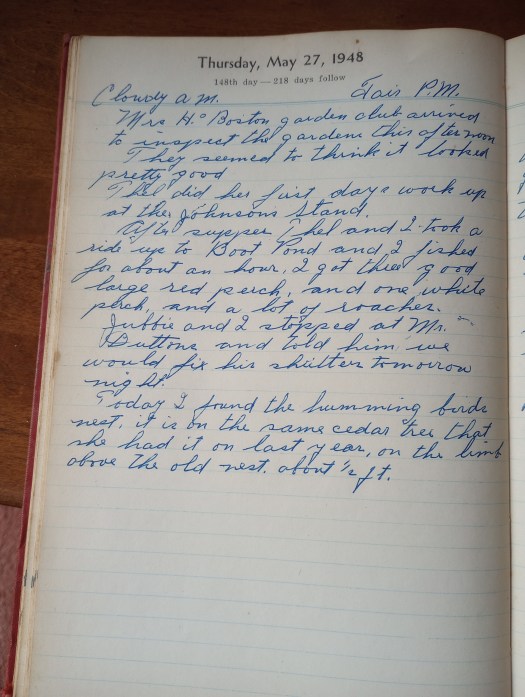 Thursday, May 27, 1948
148th day — 218 days follow
Cloudy a m. Fair P.M.
Mrs H.s Boston garden club arrived
to inspect the gardens this afternoon
They seemed to think it looked
pretty good
Thel did her first days work up
at the Johnsons Stand.
After supper Thel and I took a
ride up to Boot Pond and I fished
for about an hour, I got three good
large red perch, and one white
perch, and a lot of roaches.
Jubbie and I stopped at Mr.
Buttons and told him we
would fix his shutters tomorrow
night.
Today I found the humming birds
nest, it is on the same cedar tree that
she had it on last year, on the limb
above the old nest. about ½ ft.